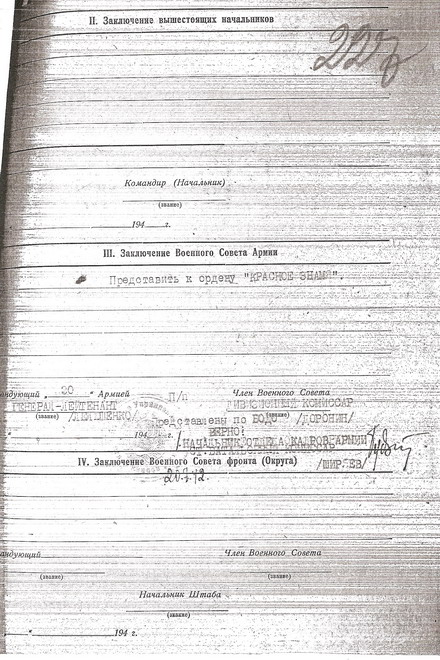 II. Заключение вышестоящих начальников
227
Командир (Начальник)
(звание)
194 г.
III. Заключение Военного Совета Армии
Представить к ордену "КРАСНОЕ ЗНАМЯ".
андующий „ 30 “ Армией П/п Член Военного Совета
ГЕНЕРАЛ-ЛЕЙТЕНАНТ ДИВИЗИОННЫЙ КОМИССАР
(звание) /ЛЕЛЮШЕНКО/ (звание)
194 Представлены по ВОДО /ДОРОНИН/
ВЕРНО:
/НАЧАЛЬНИК ОТДЕЛА КАДРОВ АРМИИ
IV. Заключение Военного Совета фронта (Округа) /ШИРЯЕВ/
андующий Член Военного Совета
(звание) (звание)
Начальник Штаба
(звание)
194 г.